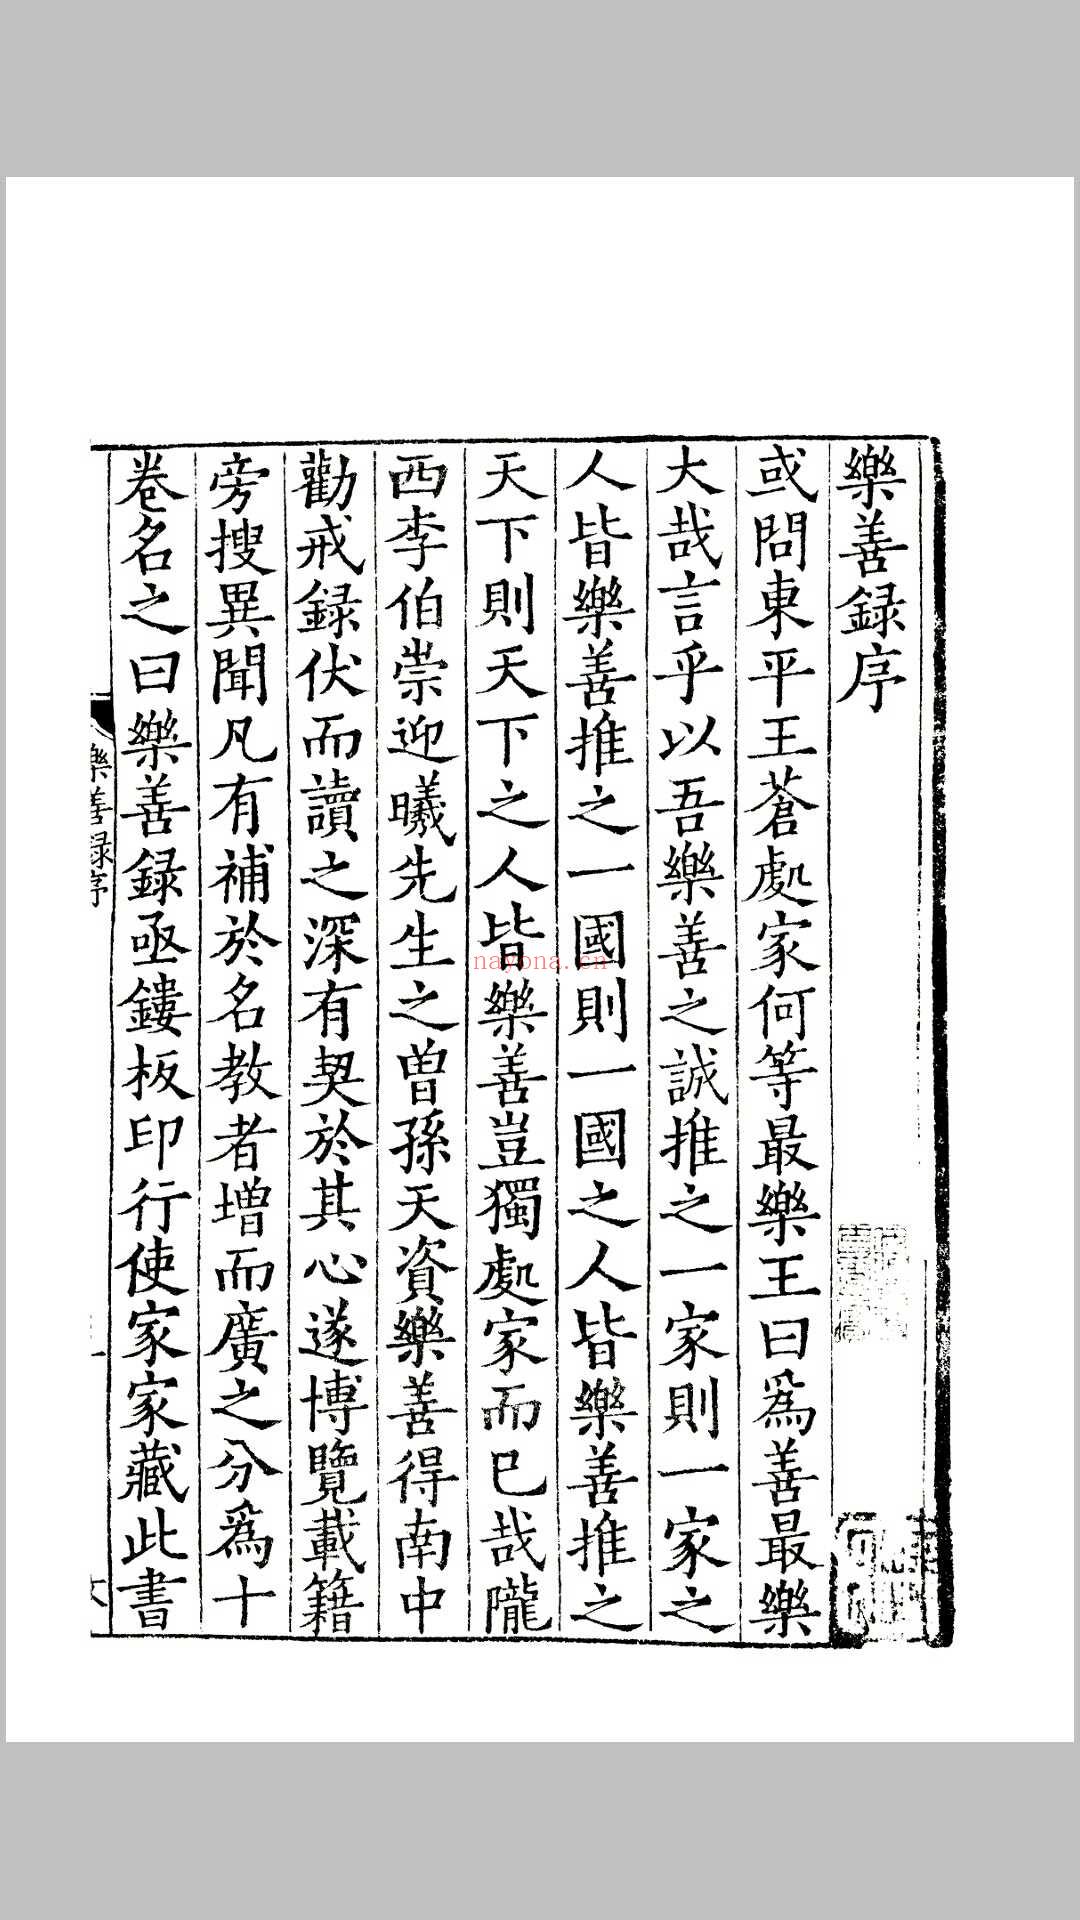 樂善録序
或問東平王蒼處家何等最樂王曰爲善最樂
大哉言乎以吾樂善之誠推之一家則一家之
人皆樂善推之一國則一國之人皆樂善推之
天下則天下之人皆樂善豈獨處家而已哉隴
西李伯崇迎曦先生之曽孫天資樂善得南中
勸戒録伏而讀之深有契於其心遂博覽載籍
旁搜異聞凡有補於名教者增而廣之分爲十
卷名之曰樂善録亟鏤板印行使家家藏此書
樂善録序
nayona.cn